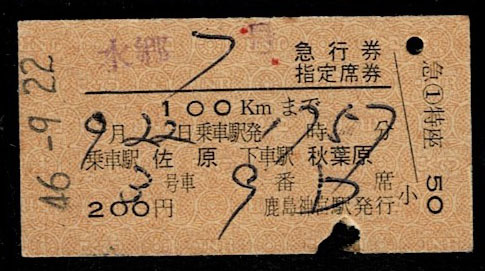 水郷 7号
急行券
指定席券
100Kmまで
9月22日乗車駅発17時57分
乗車駅 佐原 下車駅 秋葉原
3号車 9番 D席
200円 鹿島神宮駅発行
46-9 22
急①特座
小 50